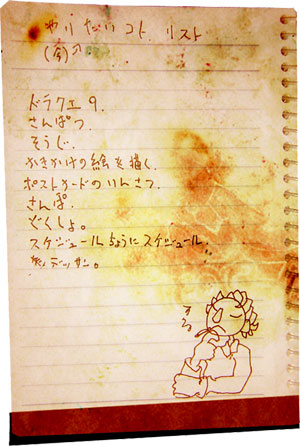 やりたいコト リスト
(今)
ドラクエ9.
さんぱつ.
そうじ.
かきかけの絵を描く.
ポストカードのいんさつ.
さんぽ.
どくしょ。
スケジュールちょうにスケジュール.
デッサン。